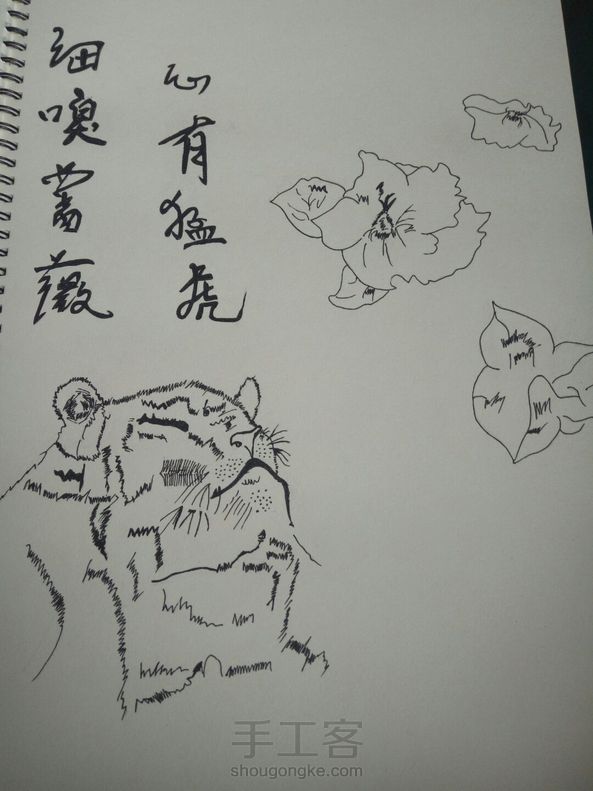 心有猛虎
细嗅蔷薇
手工客
shougongke.com